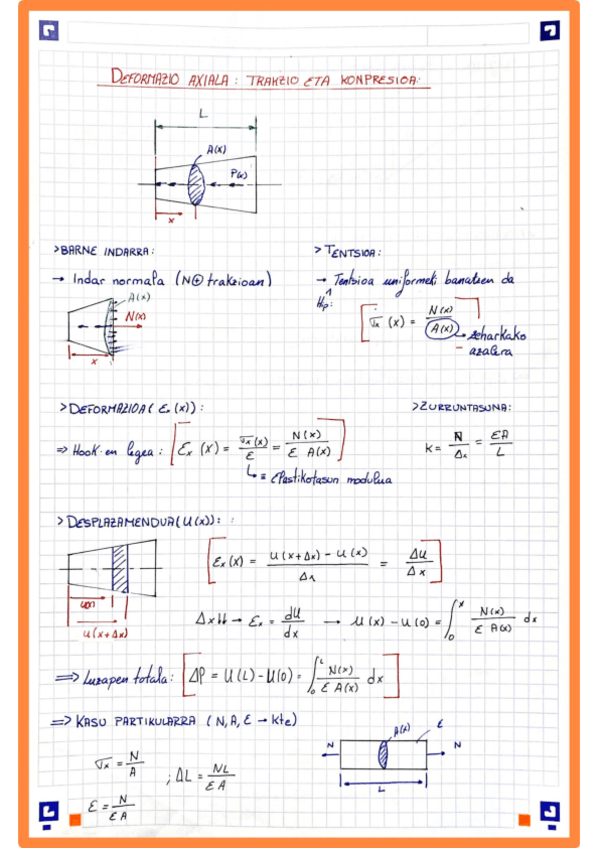 DEFORMAZIO AXIALA: TRAKZIO ETA KONPRESIOA.
L
A(x)
P(x)
x
>BARNE INDARRA:
→ Indar normala (N⊕ trakzioan)
A(x)
N(x)
x
>TENTSIOA:
→ Tentsioa uniformeki banatzen da
Hip:
[σx (x) = N(x) / A(x)] → zeharkako azalera
>DEFORMAZIOA (Ex(x)):
⇒ Hook-en legea: [Ex (x) = σx(x) / E = N(x) / E A(x)]
↳ = Elastikotasun modulua
>ZURRUNTASUNA:
K = N / Δx = EA / L
>DESPLAZAMENDUA (U(x)): :
u(x)
u(x+Δx)
[Ex (x) = u(x+Δx) - u(x) / Δx = Δu / Δx]
Δx↓↓ → Ex = du / dx → u(x) - u(0) = ∫₀ˣ N(x) / E A(x) dx
⇒ Luzapen totala: [Δl = U(L) - U(0) = ∫₀ᴸ N(x) / E A(x) dx]
⇒ KASU PARTIKULARRA (N, A, E → kte)
σx = N / A
; ΔL = NL / EA
E = N / EA
A(x)
E
N
N
L